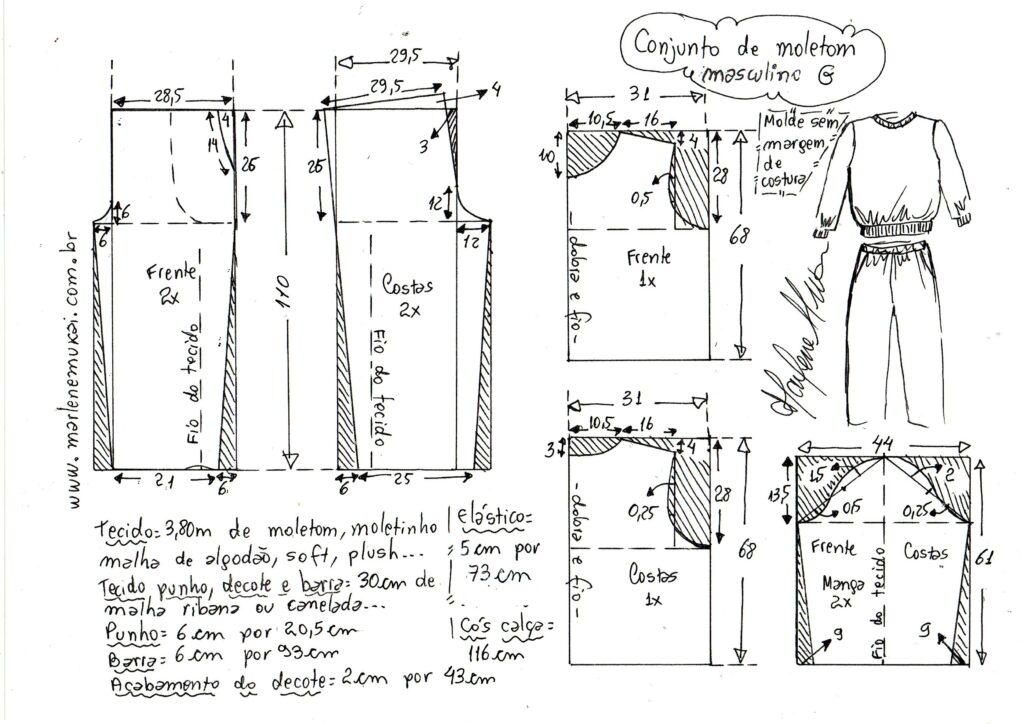 Conjunto de moletom
masculino G
Molde sem
margem
de
costura
29,5
28,5
29,5
4
4
14
25
25
3
6
6
12
12
110
Frente
2x
Costas
2x
Fio do tecido
Fio do tecido
21
6
6
25
www.marlenemukai.com.br
31
10,5
16
10
4
28
0,5
68
Frente
1x
-dobra e fio-
31
10,5
16
3
4
28
0,25
68
Costas
1x
-dobra e fio-
44
13,5
1,5
2
0,5
0,25
61
Frente
Costas
Manga
2x
Fio do tecido
9
9
Tecido= 3,80m de moletom, moletinho
malha de algodão, soft, plush...
Tecido punho, decote e barra= 30cm de
malha ribana ou canelada...
Punho= 6cm por 20,5cm
Barra= 6cm por 93cm
Acabamento do decote= 2cm por 43cm
elástico=
5cm por
73cm
Cós calça=
116cm
Marlene Mukai